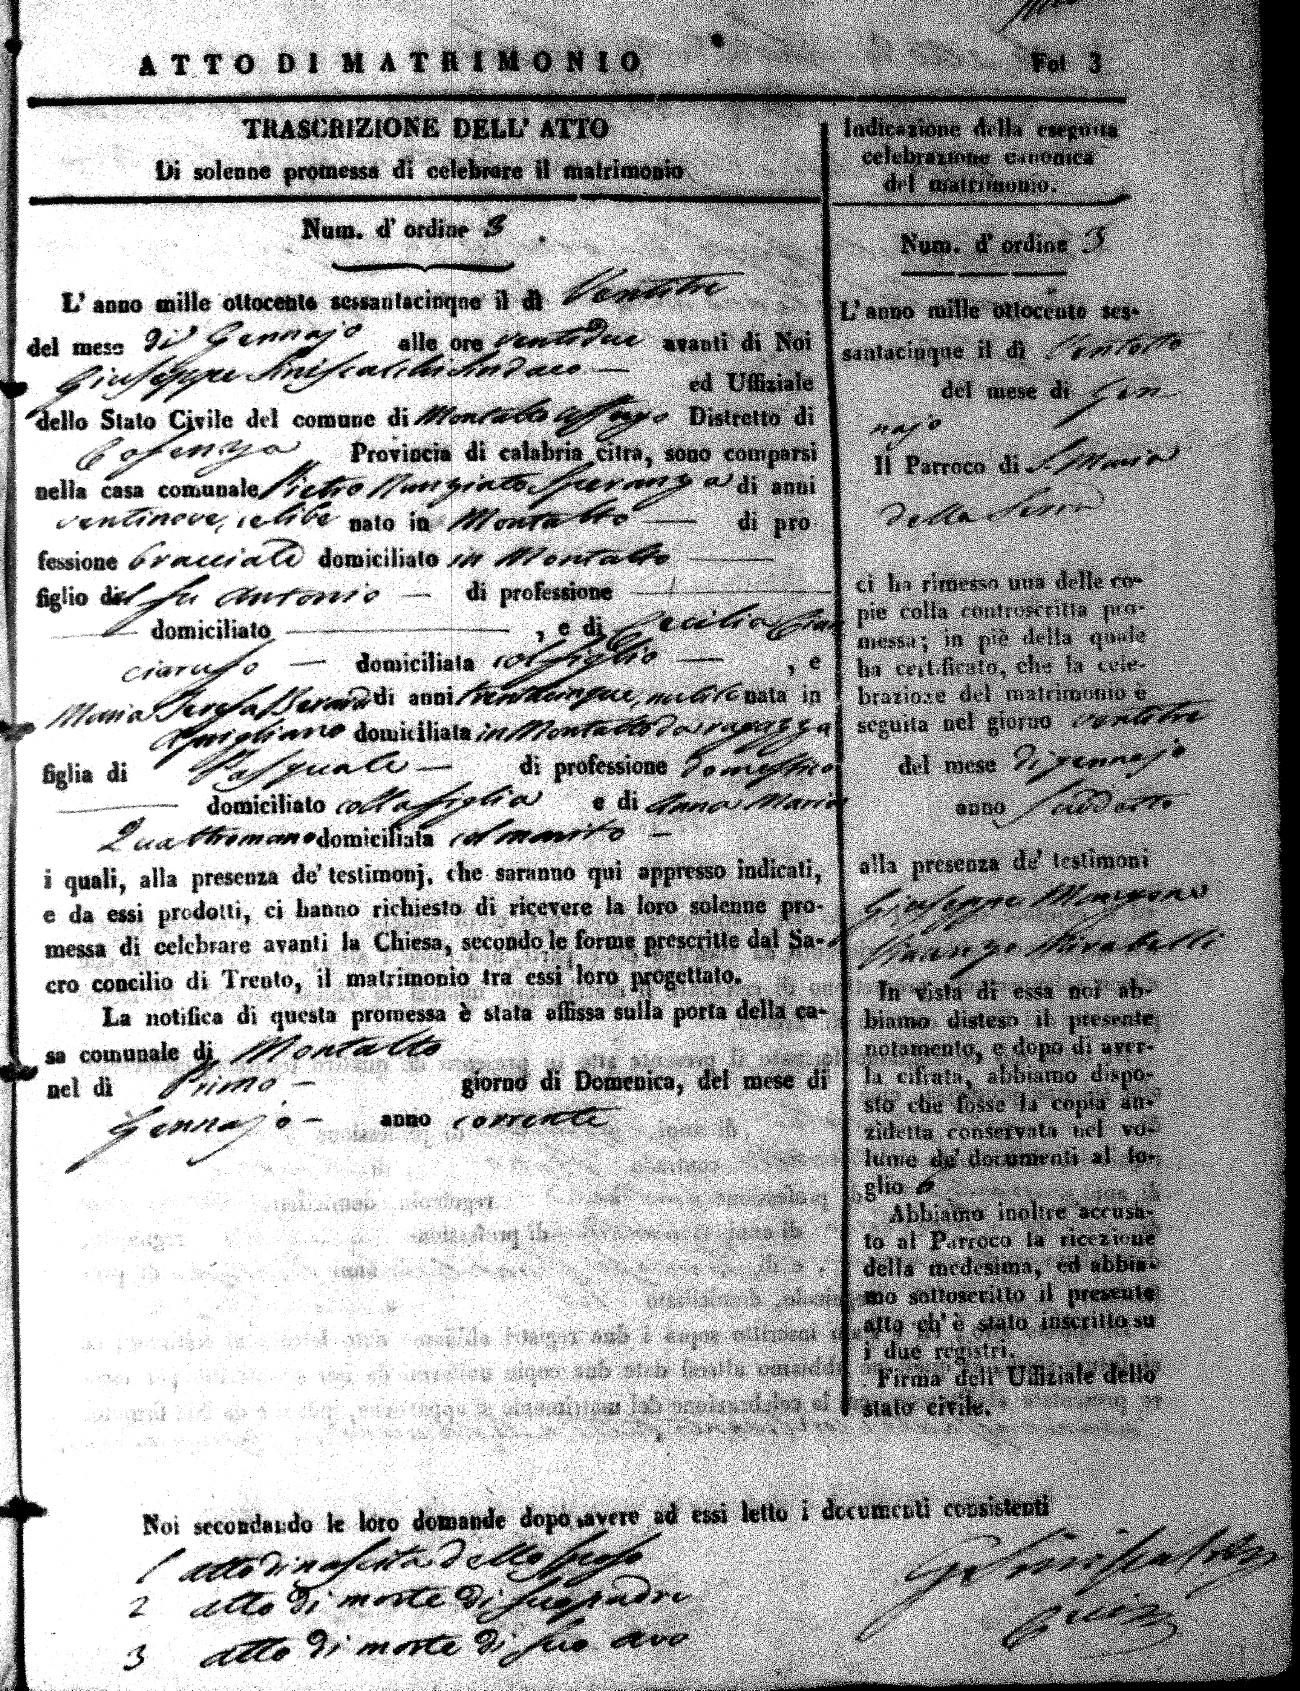 ATTO DI MATRIMONIO
Fol 3
TRASCRIZIONE DELL' ATTO
Di solenne promessa di celebrare il matrimonio
Num. d' ordine 3
L' anno mille ottocento sessantacinque il dì Ventitre
del mese di Gennajo alle ore ventidue avanti di Noi
Giuseppe Siniscalchi Sindaco — ed Uffiziale
dello Stato Civile del comune di Montalto Uffugo Distretto di
Cosenza Provincia di calabria citra, sono comparsi
nella casa comunale Pietro Nunziato Speranza di anni
ventinove, celibe nato in Montalto — di pro
fessione bracciale domiciliato in Montalto —
figlio del fu Antonio — di professione —
— domiciliato — , e di Cecilia Cian
ciaruso — domiciliata col figlio — , e
Maria Teresa di anni trentacinque, nubile nata in
domiciliata in Montalto da ragazza
figlia di Pasquale — di professione domestico
— domiciliato colla figlia e di Anna Maria
Quattromano domiciliata col marito —
i quali, alla presenza de' testimonj, che saranno qui appresso indicati,
e da essi prodotti, ci hanno richiesto di ricevere la loro solenne pro-
messa di celebrare avanti la Chiesa, secondo le forme prescritte dal Sa-
cro concilio di Trento, il matrimonio tra essi loro progettato.
La notifica di questa promessa è stata affissa sulla porta della ca-
sa comunale di Montalto
nel dì Primo — giorno di Domenica, del mese di
Gennajo — anno corrente
Indicazione della eseguita
celebrazione canonica
del matrimonio.
Num. d' ordine 3
L' anno mille ottocento ses-
santacinque il dì Ventotto
del mese di Gen
najo
Il Parroco di S. Maria
della Serra
ci ha rimesso una delle co-
pie colla controscritta pro-
messa; in piè della quale
ha certificato, che la cele-
brazione del matrimonio è
seguita nel giorno ventitre
del mese di gennajo
anno suddetto
alla presenza de' testimoni
Giuseppe
Mirabelli
In vista di essa noi ab-
biamo disteso il presente
notamento, e dopo di aver-
la cifrata, abbiamo dispo-
sto che fosse la copia an-
zidetta conservata nel vo-
lume de' documenti al fo-
glio 6
Abbiamo inoltre accusa-
to al Parroco la ricezione
della medesima, ed abbia-
mo sottoscritto il presente
atto ch' è stato inscritto su
i due registri.
Firma dell' Uffiziale dello
stato civile.
Noi secondando le loro domande dopo avere ad essi letto i documenti consistenti
1 atto di nascita dello sposo
2 atto di morte di suo padre
3 atto di morte di suo avo